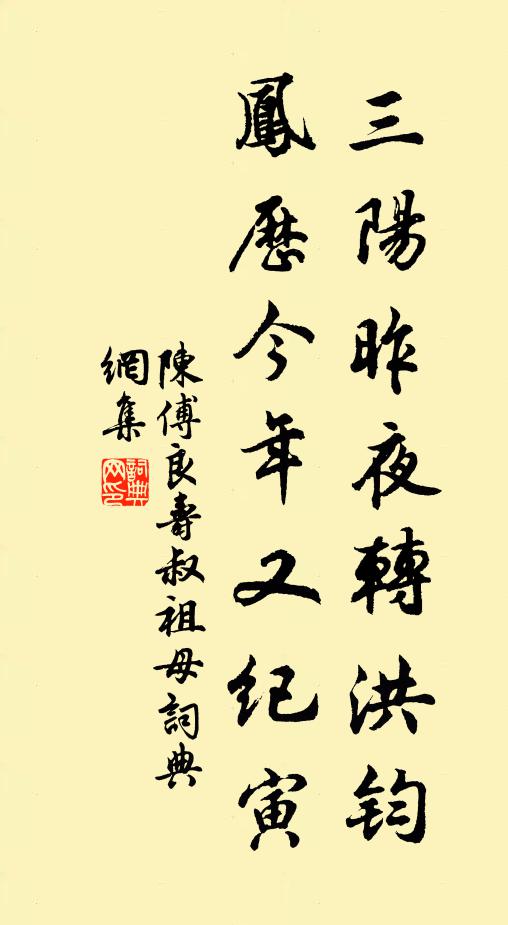 三陽昨夜轉洪鈞
鳳歷今年又紀寅
陳傅良壽叔祖母詞典
網集
詞典
网印